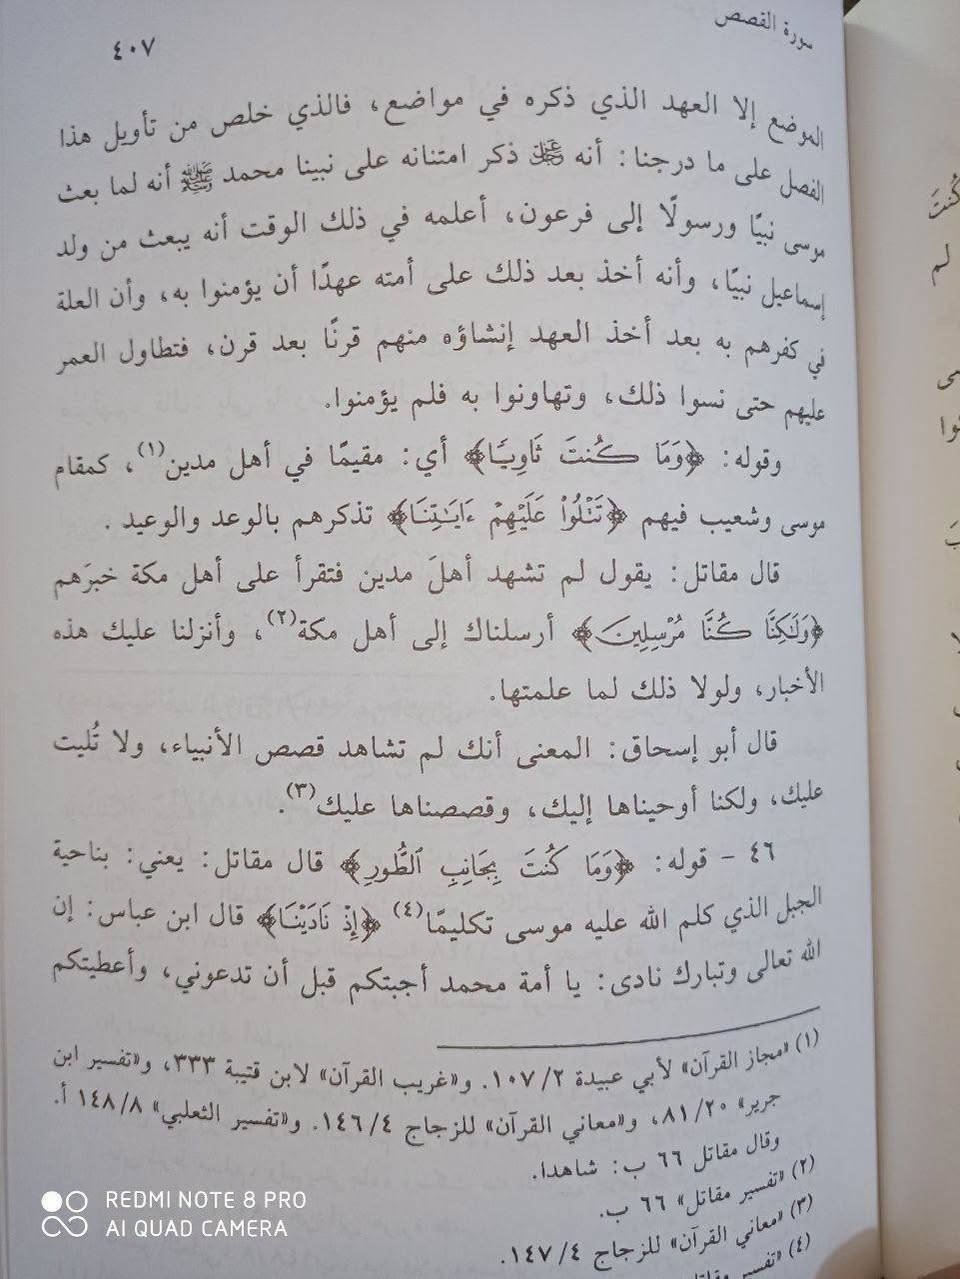 سورة القصص
٤٠٧
الموضع إلا العهد الذي ذكره في مواضع، فالذي خلص من تأويل هذا
الفصل على ما درجنا: أنه ﷻ ذكر امتنانه على نبينا محمد ﷺ أنه لما بعث
موسى نبيًا ورسولًا إلى فرعون، أعلمه في ذلك الوقت أنه يبعث من ولد
إسماعيل نبيًا، وأنه أخذ بعد ذلك على أمته عهدًا أن يؤمنوا به، وأن العلة
في كفرهم به بعد أخذ العهد إنشاؤه منهم قرنًا بعد قرن، فتطاول العمر
عليهم حتى نسوا ذلك، وتهاونوا به فلم يؤمنوا.
وقوله: ﴿وَمَا كُنتَ ثَاوِيًا﴾ أي: مقيمًا في أهل مدين(١)، كمقام
موسى وشعيب فيهم ﴿تَتْلُوا۟ عَلَيْهِمْ ءَايَـٰتِنَا﴾ تذكرهم بالوعد والوعيد.
قال مقاتل: يقول لم تشهد أهلَ مدين فتقرأ على أهل مكة خبرَهم
﴿وَلَـٰكِنَّا كُنَّا مُرْسِلِينَ﴾ أرسلناك إلى أهل مكة(٢)، وأنزلنا عليك هذه
الأخبار، ولولا ذلك لما علمتها.
قال أبو إسحاق: المعنى أنك لم تشاهد قصص الأنبياء، ولا تُليت
عليك، ولكنا أوحيناها إليك، وقصصناها عليك(٣).
٤٦ - قوله: ﴿وَمَا كُنتَ بِجَانِبِ ٱلطُّورِ﴾ قال مقاتل: يعني: بناحية
الجبل الذي كلم الله عليه موسى تكليمًا(٤) ﴿إِذْ نَادَيْنَا﴾ قال ابن عباس: إن
الله تعالى وتبارك نادى: يا أمة محمد أجبتكم قبل أن تدعوني، وأعطيتكم
(١) «مجاز القرآن» لأبي عبيدة ٢/ ١٠٧. و«غريب القرآن» لابن قتيبة ٣٣٣، و«تفسير ابن
جرير» ٢٠/ ٨١، و«معاني القرآن» للزجاج ٤/ ١٤٦. و«تفسير الثعلبي» ٨/ ١٤٨ أ.
وقال مقاتل ٦٦ ب: شاهدا.
(٢) «تفسير مقاتل» ٦٦ ب.
(٣) «معاني القرآن» للزجاج ٤/ ١٤٧.
(٤) «تفسير
كُنتَ
لم
REDMI NOTE 8 PRO
AI QUAD CAMERA